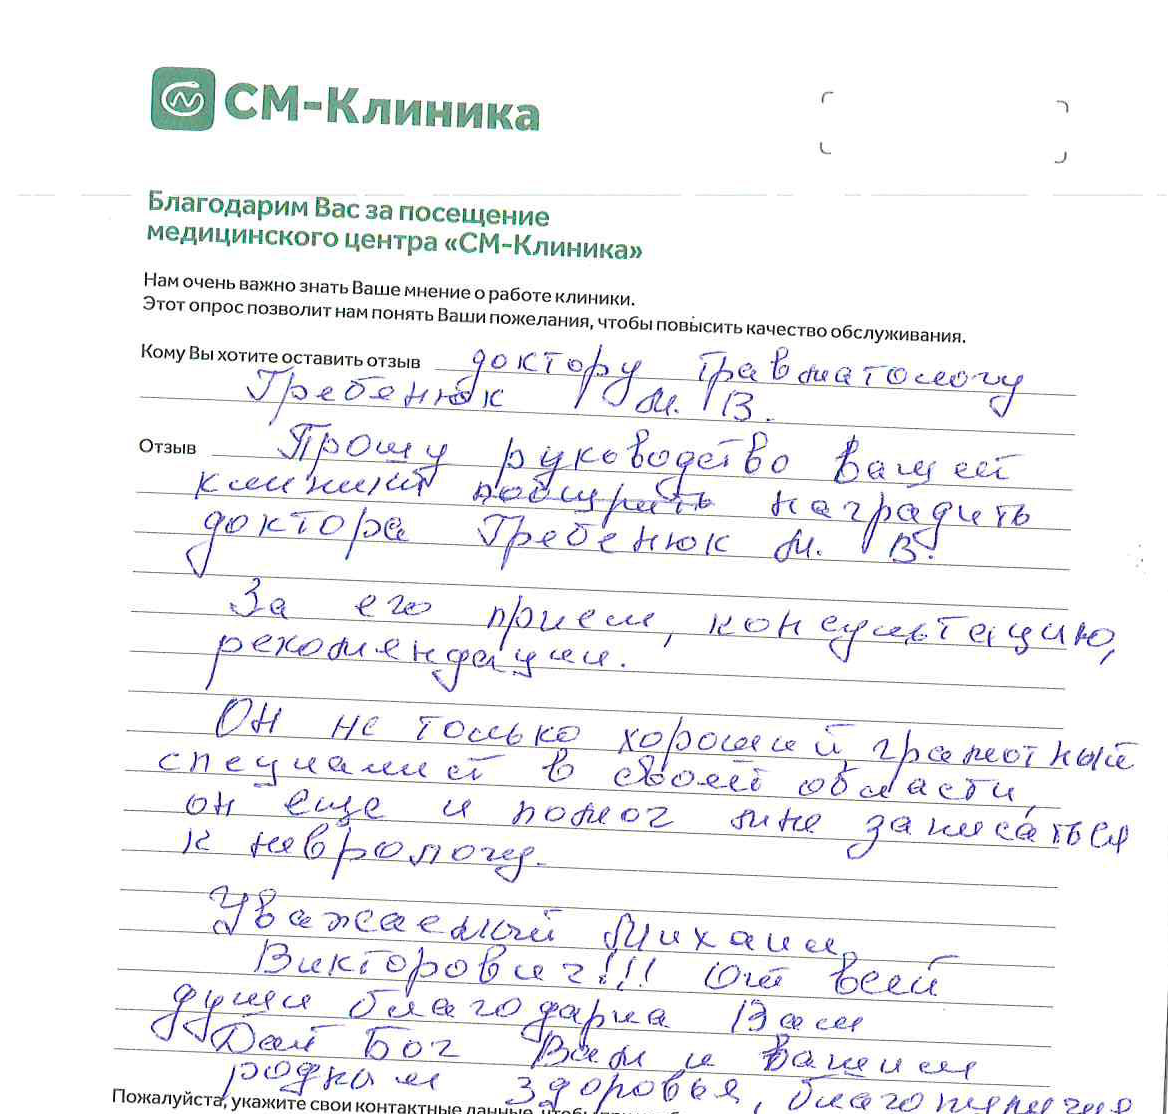 СМ-Клиника
Благодарим Вас за посещение
медицинского центра «СМ-Клиника»
Нам очень важно знать Ваше мнение о работе клиники.
Этот опрос позволит нам понять Ваши пожелания, чтобы повысить качество обслуживания.
Кому Вы хотите оставить отзыв доктору травматологу
Гребенюк М. В.
Отзыв Прошу руководство вашей
клиники поощрить наградить
доктора Гребенюк М. В.
За его прием, консультацию,
рекомендации.
Он не только хороший, грамотный
специалист в своей области,
он еще и помог мне записаться
к неврологу.
Уважаемый Михаил
Викторович!!! От всей
души благодарна Вам
Дай Бог Вам и вашим
родным здоровья, благополучия
Пожалуйста, укажите свои контактные данные, чтобы